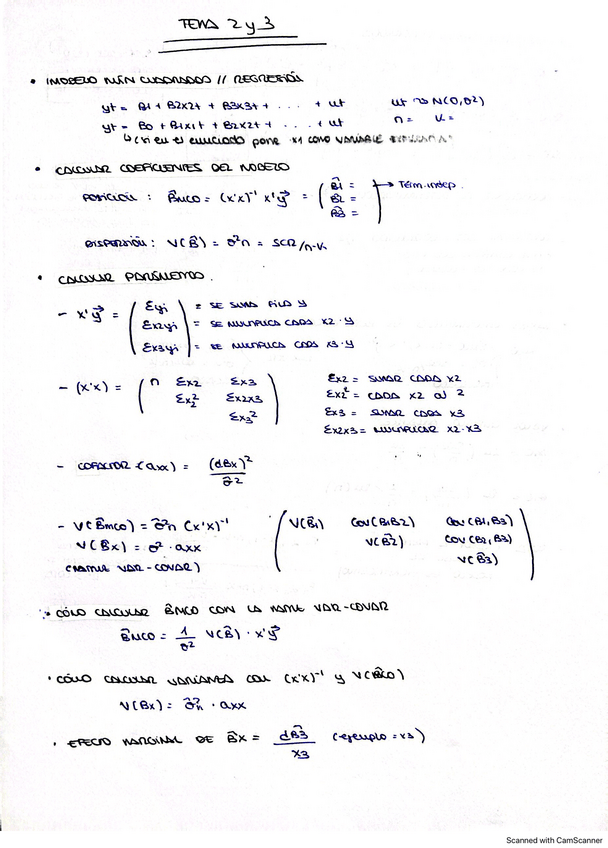 TEMA 2 y 3
• MODELO MIN CUADRADOS // REGRESIÓN
yt = B1 + B2x2t + B3x3t + . . . . + ut ut ~> N(0,σ2)
yt = B0 + B1x1t + B2x2t + . . . . + ut n = k =
↳ (si en el enunciado pone x1 como VARIABLE EXPLICATIVA)
• CALCULAR COEFICIENTES DEL MODELO
POSICIÓN : B̂MCO = (x'x)⁻¹ x'y⃗ = ( B̂1 = → Térm. indep.
B̂2 =
B̂3 = )
DISPERSIÓN : V(B̂) = σ̂²n = SCR/n-k
• CALCULAR PARÁMETROS.
- x'y⃗ = ( Σyi ) = SE SUMA FILA Y
( Σx2yi ) = SE MULTIPLICA CADA X2 · Y
( Σx3yi ) = SE MULTIPLICA CADA X3 · Y
- (x'x) = ( n Σx2 Σx3 ) Σx2 = SUMAR CADA X2
Σx2² Σx2x3 Σx2² = CADA X2 al 2
Σx3² Σx3 = SUMAR CADA X3
Σx2x3 = MULTIPLICAR X2 · X3
- COFACTOR (axx) = (dBx)² / σ̂2
- V(B̂mco) = σ̂²n (x'x)⁻¹ ( V(B̂1) COV(B1B2) Cov(B1,B3)
V(B̂x) = σ² · axx V(B̂2) COV(B2,B3)
(MATRIZ VAR-COVAR) V(B̂3) )
• CÓMO CALCULAR B̂MCO CON LA MATRIZ VAR-COVAR
B̂MCO = 1/σ² V(B̂) · x'y⃗
• CÓMO CALCULAR VARIANZA CON (x'x)⁻¹ y V(B̂MCO)
V(Bx) = σ̂²n · axx
• EFECTO MARGINAL DE B̂x = dB̂3 / x3 (ejemplo = x3)
Scanned with CamScanner